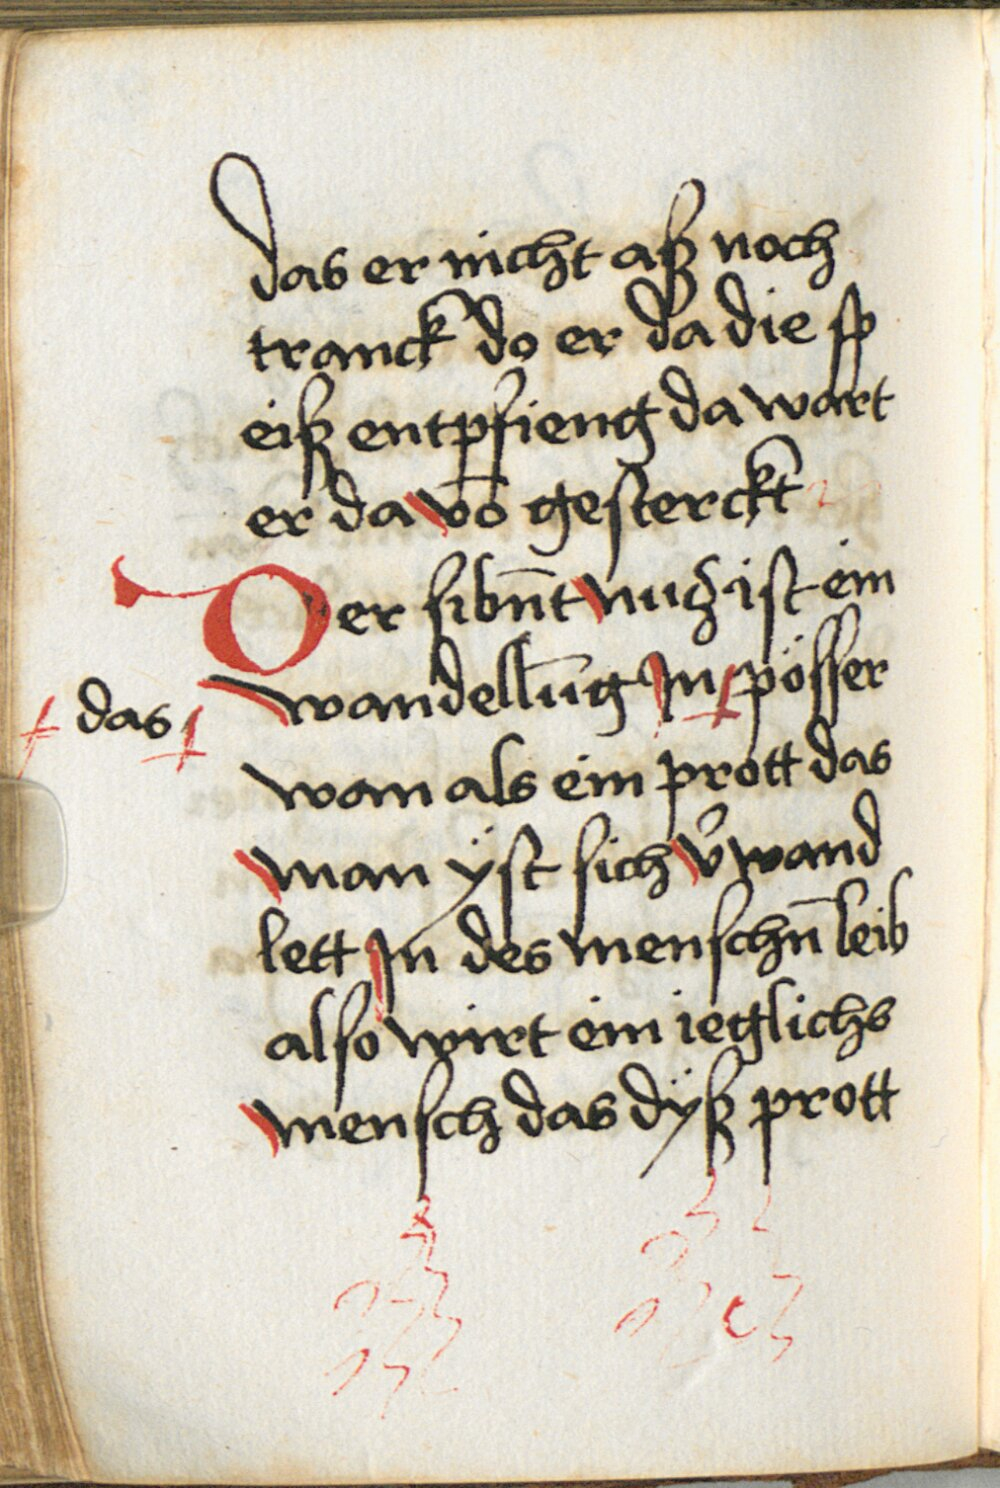 das er nicht aß noch
tranck do er da die sp
eiß entpfieng da wart
er da vō gesterckt
Der sibn̄t nucz ist ein
das
wandellūg Jn pösser
wan als ein prott das
man ÿst sich v̄wand
lett Jn des menschn̄ leib
also wirt ein ieglichs
mensch das dÿß prott